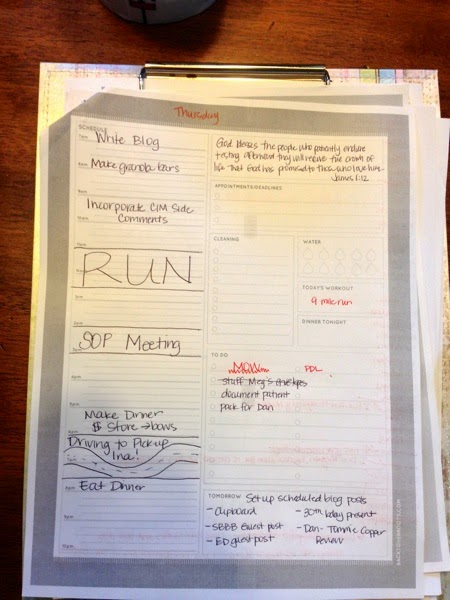 Thursday
SCHEDULE
7am Write Blog
8am
Make granola bars
9am
Incorporate CIM Side
Comments
10am
11am
RUN
1pm
2pm
SOP Meeting
3pm
4pm
5pm
6pm
Make Dinner
$ Store → bows
7pm
Driving to Pick up
Ina!
8pm
Eat Dinner
9pm
10am
God blesses the people who patiently endure
testing. Afterward they will receive the crown of
life that God has promised to those who love him -
James 1:12
APPOINTMENTS/DEADLINES
CLEANING
WATER
TODAY'S WORKOUT
9 mile run
DINNER TONIGHT
TO DO
PDL
stuff Meg's
document patient
pack for Dan
TOMORROW Set up scheduled blog posts
- Cupboard
- SBBB Guest post
- ED guest post
- 30th bday present
- Dan - Tommie Copper
Review